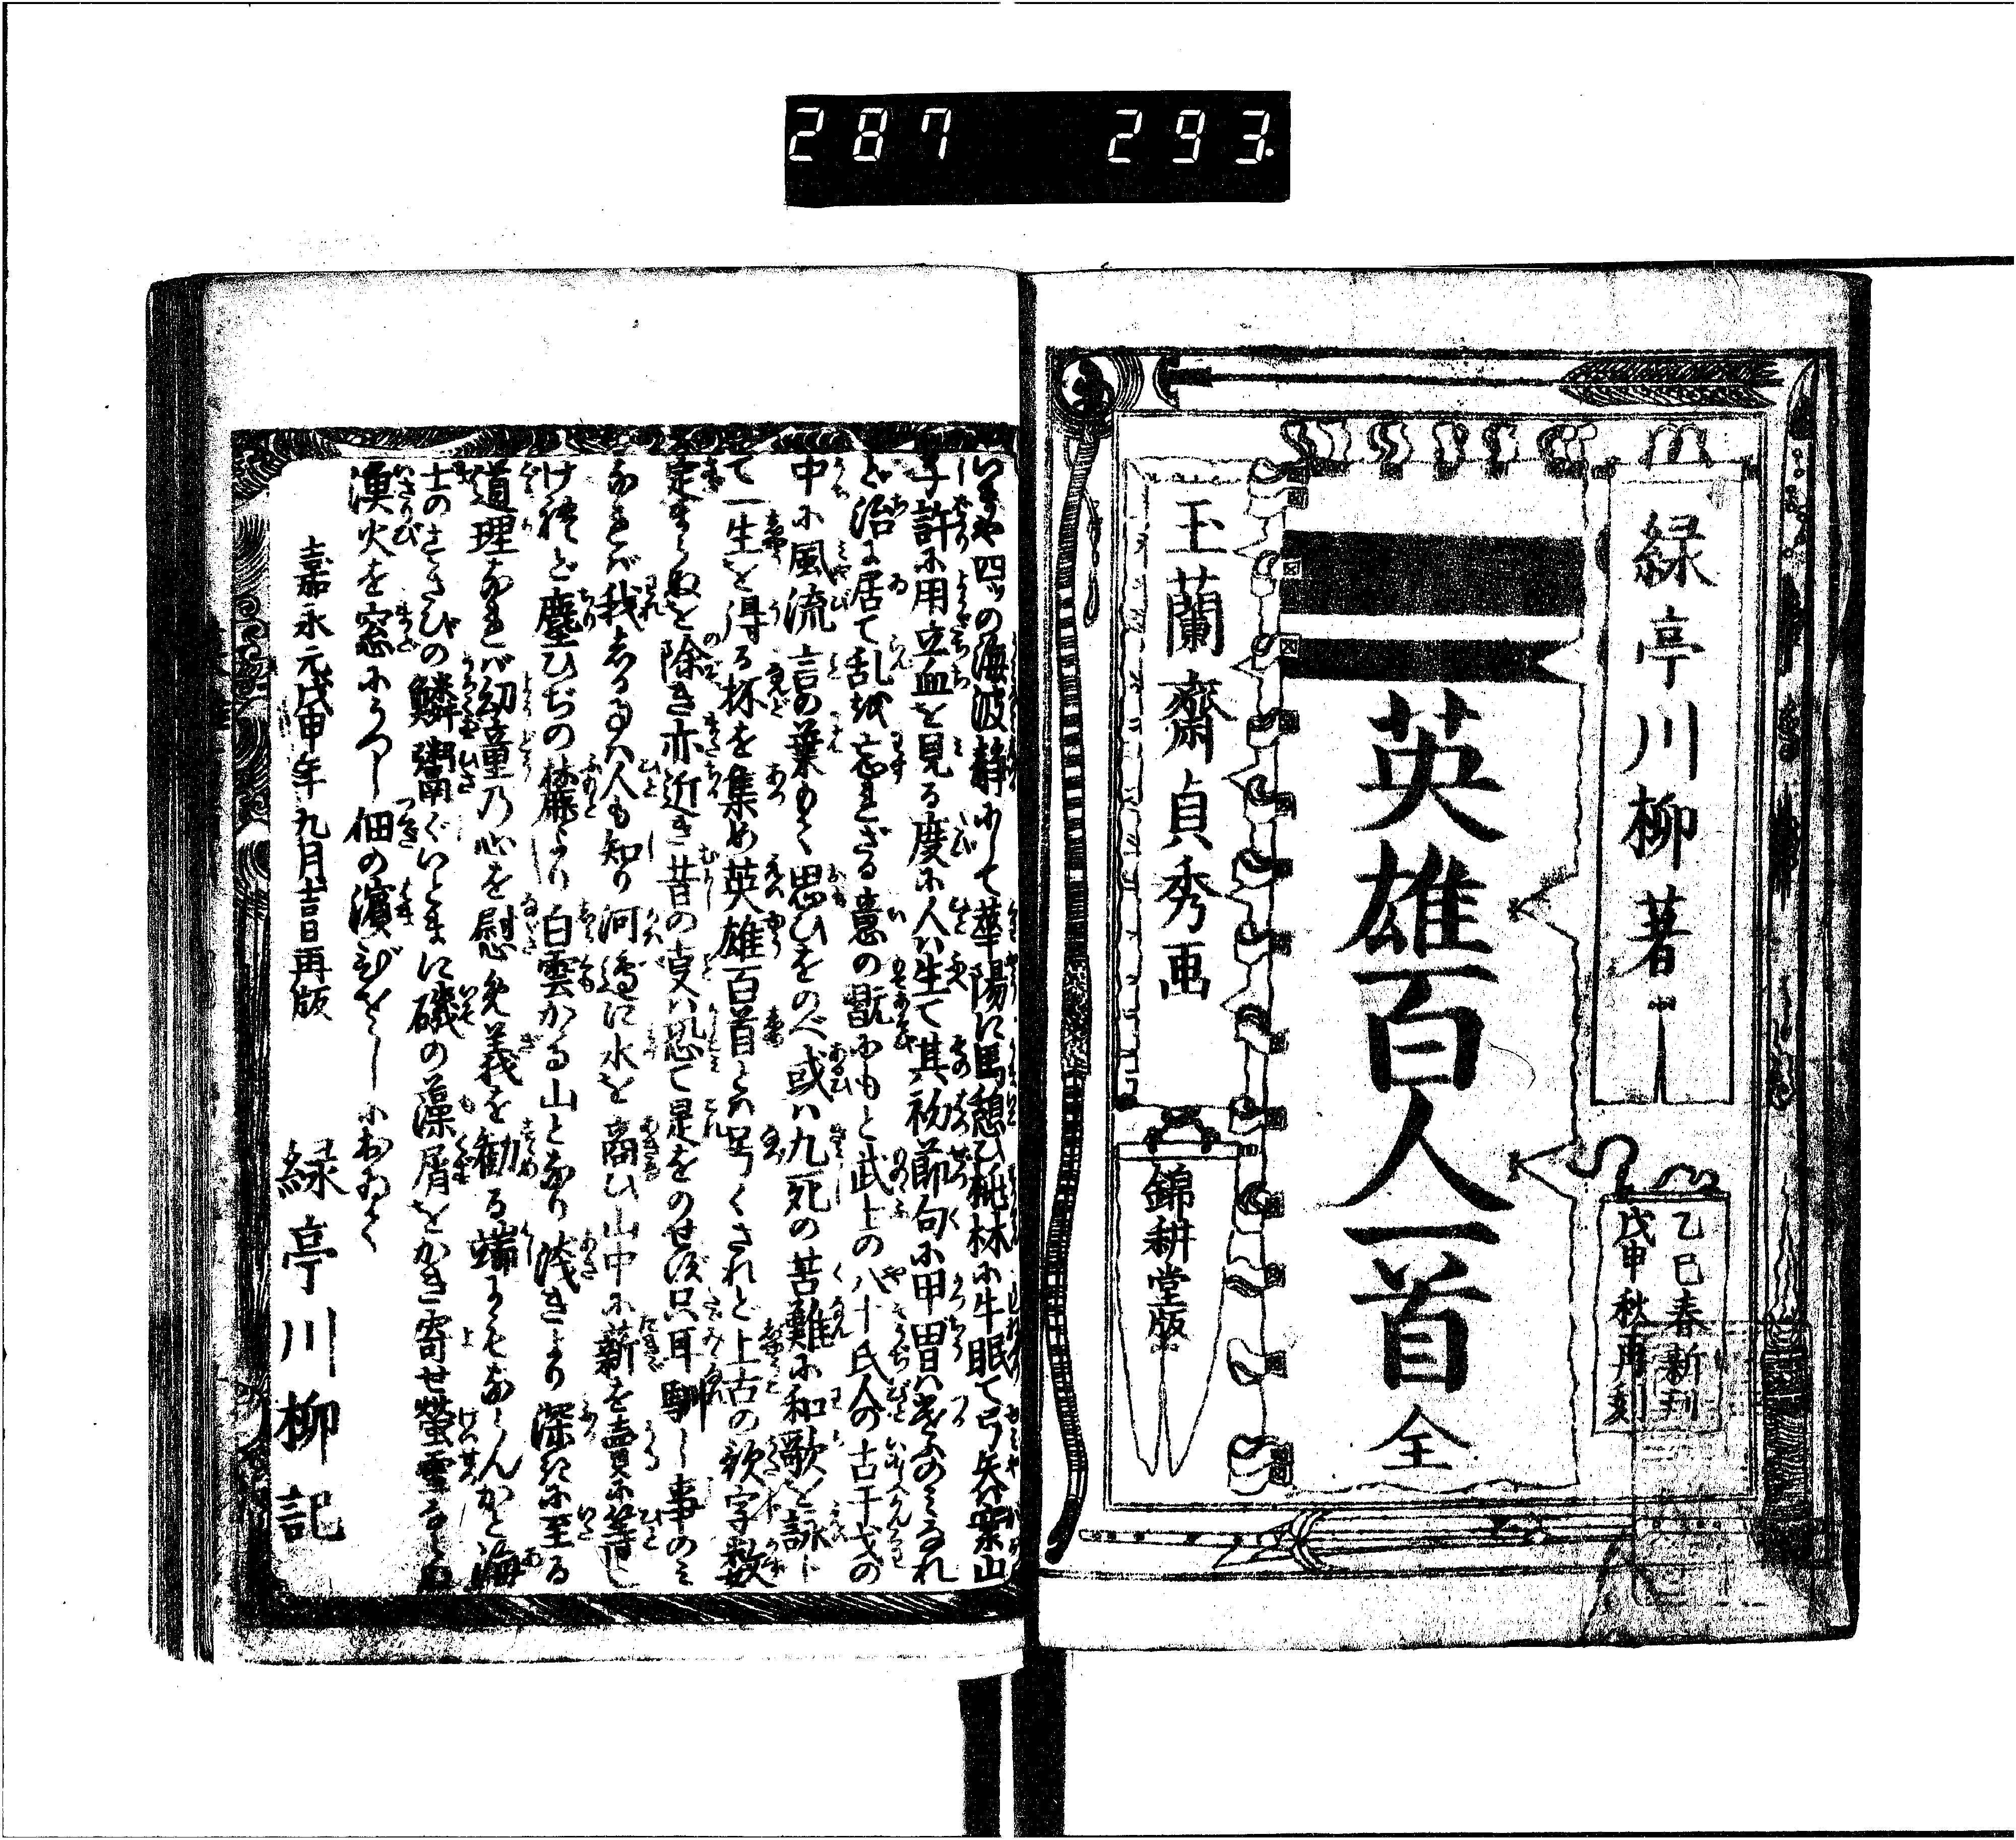 287 293.
緑亭川柳著
乙巳春新刊
戊申秋再刻
英雄百人一首 全
玉蘭齋貞秀画
錦耕堂版
四ツの海波静にして華陽に馬憩ひ桃林に牛眠て弓矢ハ
許に用立血を見る度に人ハ生て其初節句に甲冑ハ
治に居て乱を忘れざる意の
中に風流言の葉もて思ひをのべ或ハ九死の苦難に和歌を詠じ
て一生を得る抔を集め英雄百首とハ号くされど上古の歌字数
定まらぬを除き亦近き昔の事ハ恐て足をのせず只耳馴し事のミ
なれば我しる事ハ人も知り河辺に水を商ひ山中に薪を賣に等し
けれど塵ひぢの麓より白雲かゝる山となり浅きより深きに至る
道理なれば幼童の心を慰め義を勧る端にもならんかと海
士のすさびの鱗粥ぐいとまに磯の藻屑をかき寄せ螢雪ならぬ
漁火を窓にうつし佃の濱
嘉永元戊申年九月吉日再版
緑亭川柳記